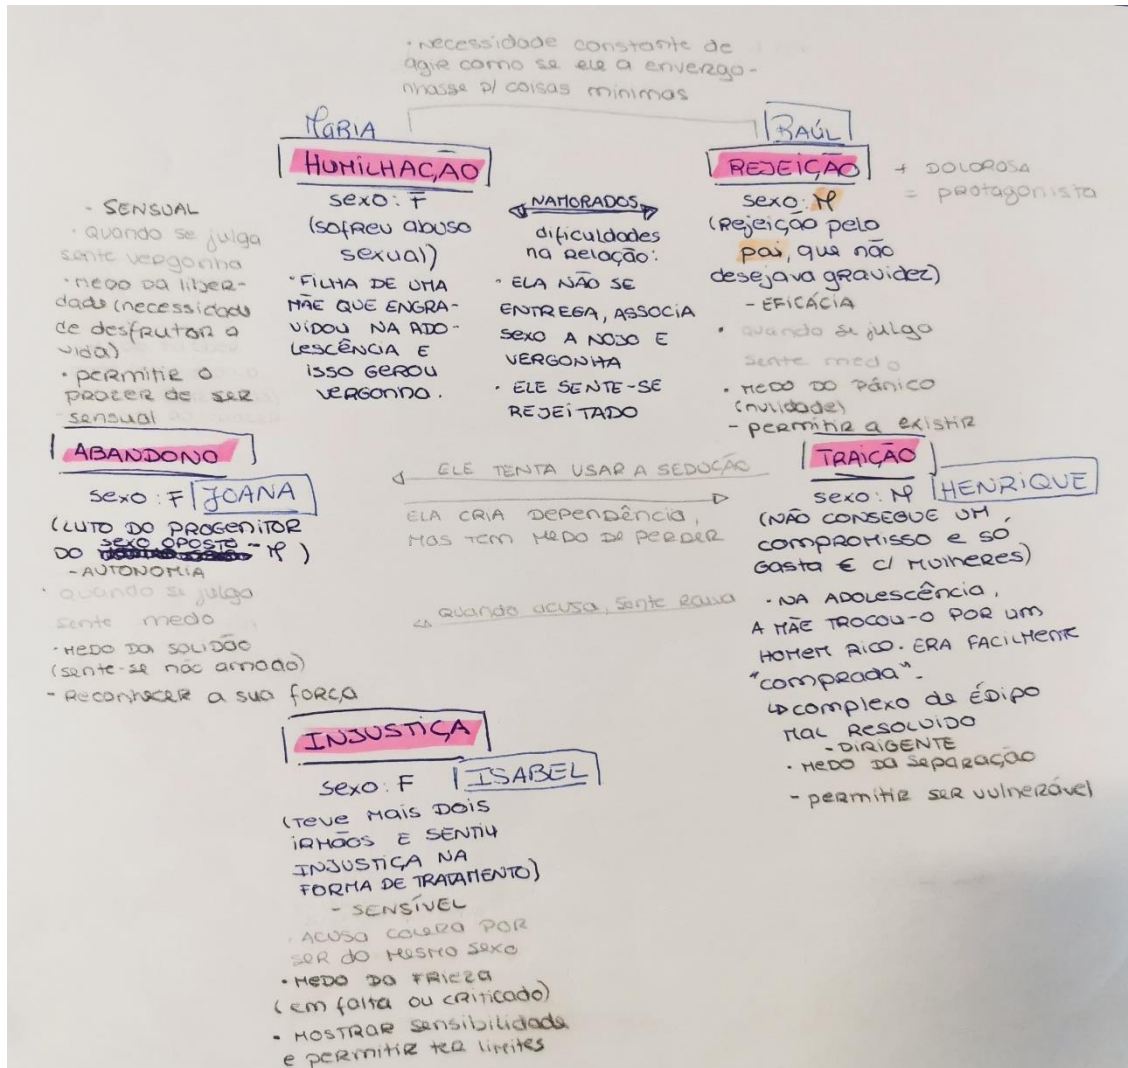 · Necessidade constante de
agir como se ele a envergo-
nhasse p/ coisas mínimas
MARIA
HUMILHAÇÃO
sexo: F
(sofreu abuso
sexual)
· FILHA DE UMA
MÃE QUE ENGRA-
VIDOU NA ADO-
LESCÊNCIA E
ISSO GEROU
VERGONHA.
- SENSUAL
· Quando se julga
sente vergonha
· medo da liber-
dade (necessidade
de desfrutar a
vida)
· permitir o
prazer de ser
sensual
NAMORADOS
dificuldades
na relação:
· ELA NÃO SE
ENTREGA, ASSOCIA
SEXO A NOJO E
VERGONHA
· ELE SENTE-SE
REJEITADO
RAÚL
REJEIÇÃO
+ DOLOROSA
= protagonista
sexo: M
(Rejeição pelo
pai, que não
desejava gravidez)
- EFICÁCIA
· quando se julga
sente medo
· MEDO DO PÂNICO
(nulidade)
- permitir a existir
ABANDONO
sexo: F JOANA
(LUTO DO PROGENITOR
DO SEXO OPOSTO - M)
- AUTONOMIA
· quando se julga
sente medo
· MEDO DA SOLIDÃO
(sente-se não amado)
- Reconhecer a sua força
ELE TENTA USAR A SEDUÇÃO
ELA CRIA DEPENDÊNCIA,
MAS TEM MEDO DE PERDER
Quando acusa, sente raiva
TRAIÇÃO
sexo: M HENRIQUE
(NÃO CONSEGUE UM
COMPROMISSO E SÓ
GASTA € C/ MULHERES)
· NA ADOLESCÊNCIA,
A MÃE TROCOU-O POR UM
HOMEM RICO. ERA FACILMENTE
"comprada".
↳ complexo de ÉDIPO
MAL RESOLVIDO
- DIRIGENTE
· MEDO DA SEPARAÇÃO
- permitir SER vulnerável
INJUSTIÇA
sexo: F ISABEL
(TEVE MAIS DOIS
IRMÃOS E SENTIU
INJUSTIÇA NA
FORMA DE TRATAMENTO)
- SENSÍVEL
· ACUSA CÓLERA POR
SER DO MESMO SEXO
· MEDO DA FRIEZA
(em falta ou criticado)
· MOSTRAR sensibilidade
e permitir ter limites